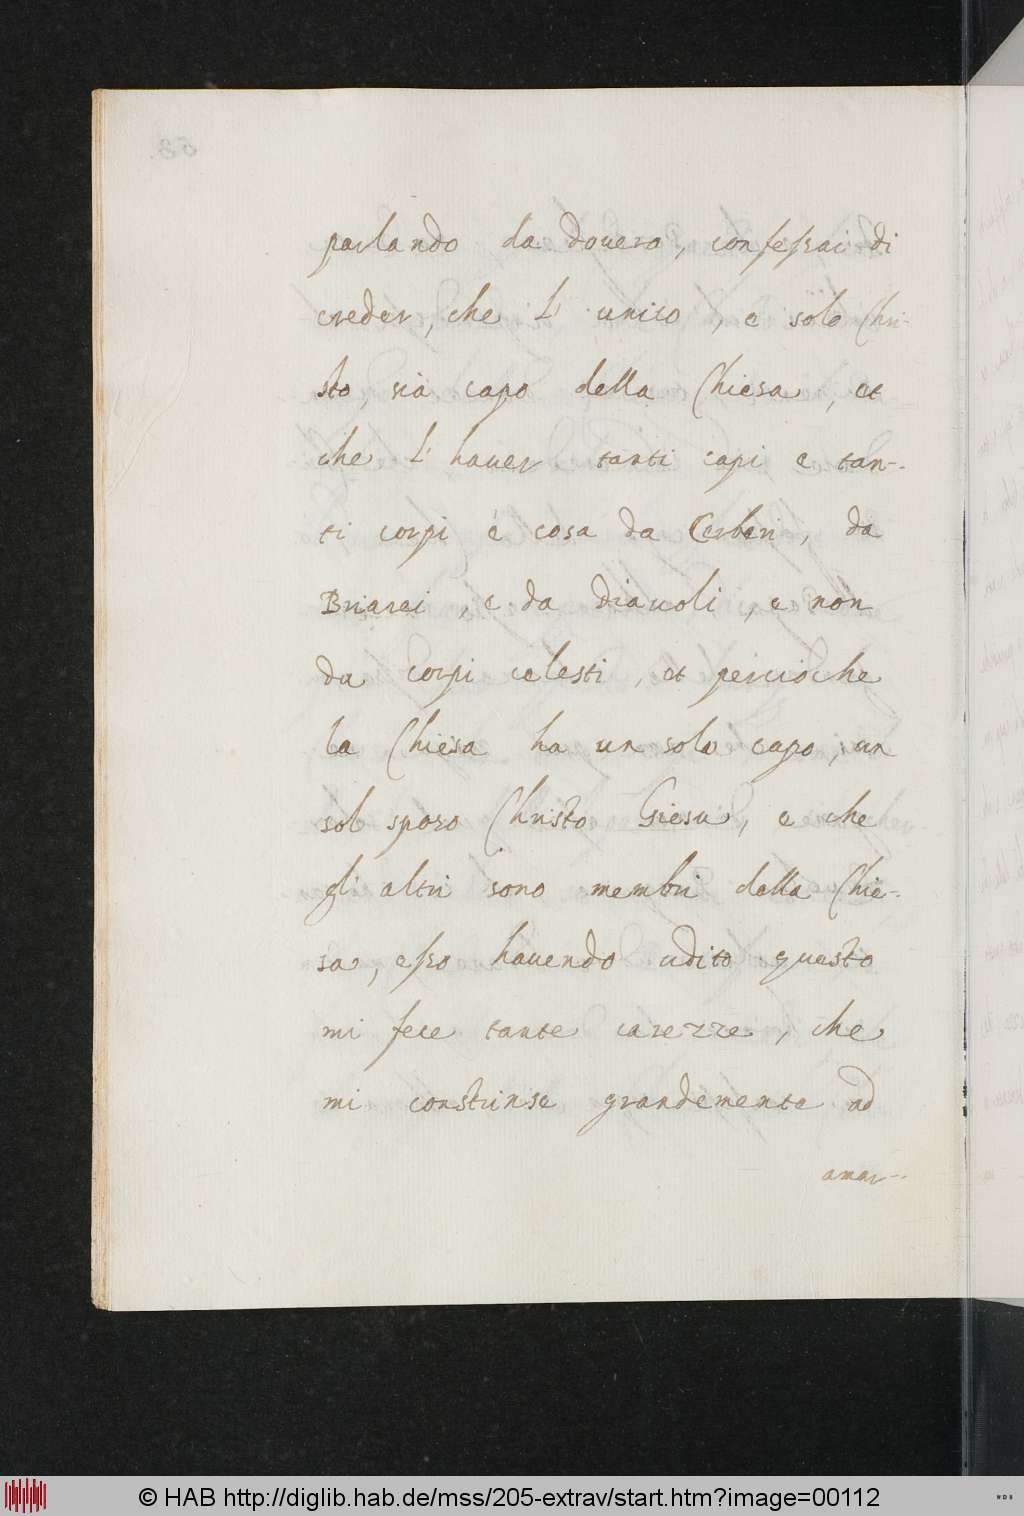 parlando da douero, confessai di
creder, che l' unico, e solo Chri-
sto, sia capo della Chiesa, et
che l' hauer tanti capi e tan-
ti corpi è cosa da Cerberi, da
Briarei, e da diauoli, e non
da corpi celesti, et percioche
la Chiesa ha un solo capo, un
sol sposo Christo Giesu, e che
gli altri sono membri della Chie-
sa, esso hauendo udito questo
mi fece tante carezze, che
mi constrinse grandemente ad
amar-
© HAB http://diglib.hab.de/mss/205-extrav/start.htm?image=00112